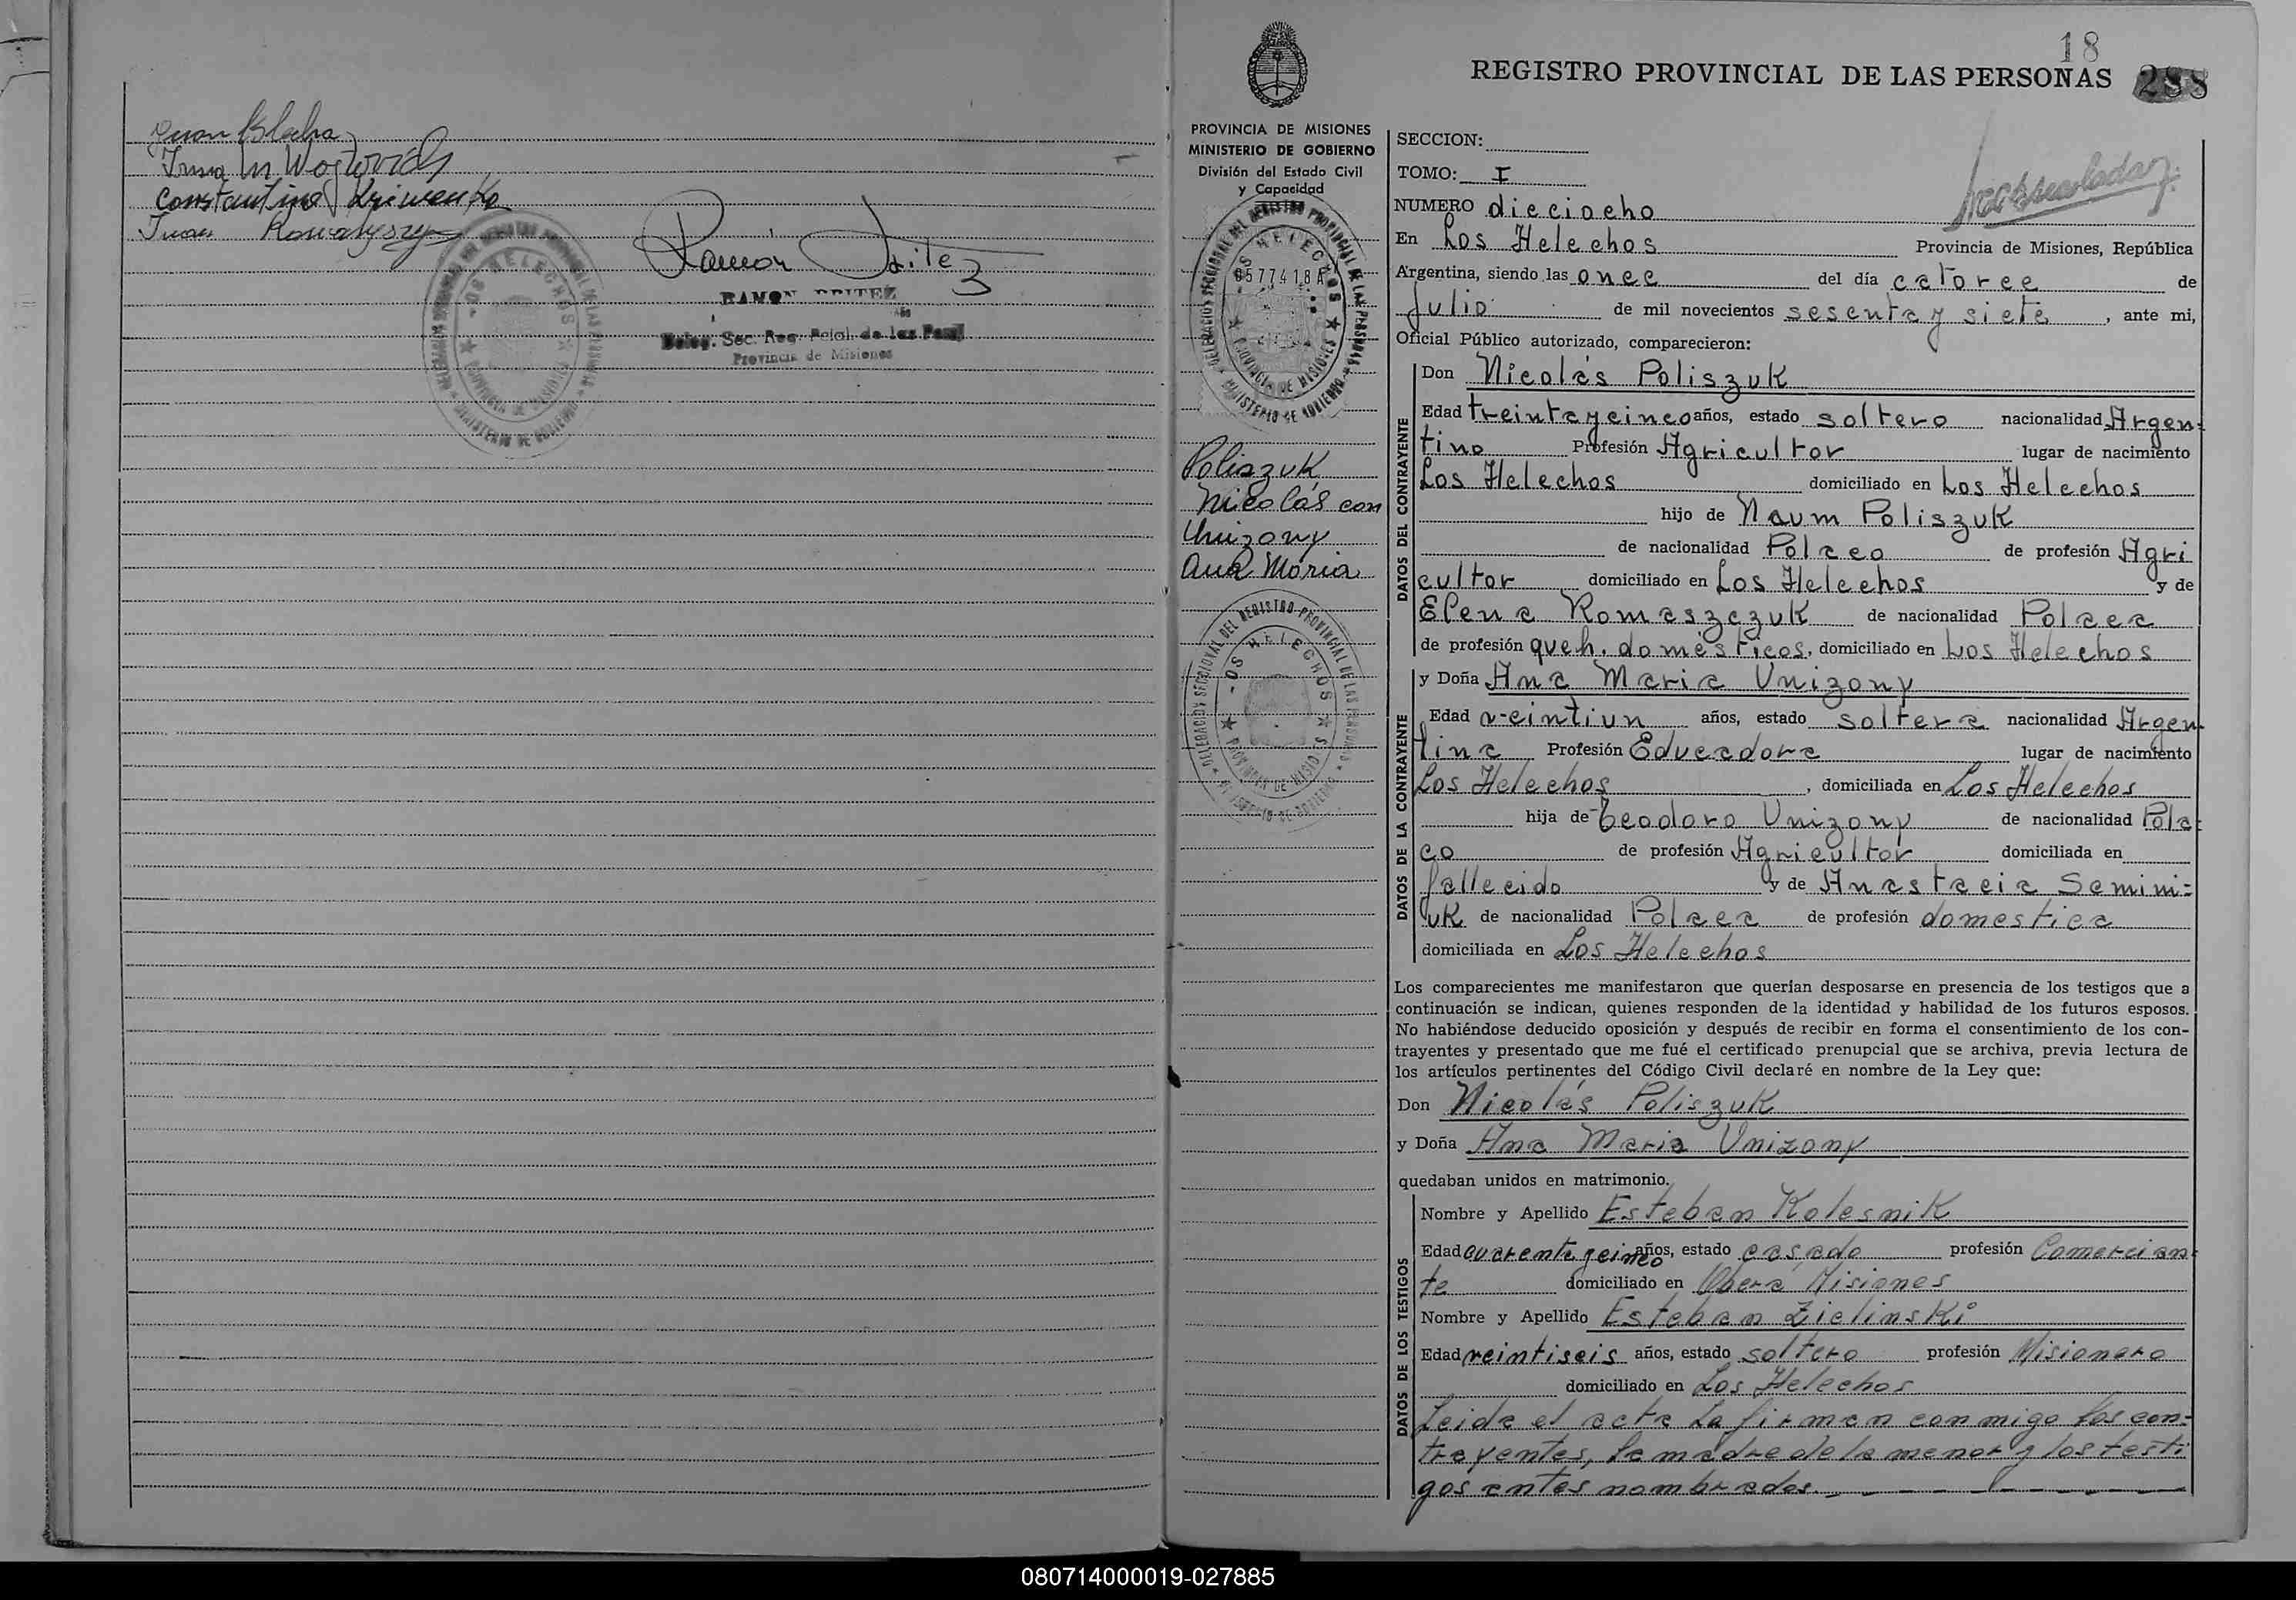 Juan Blaha
Irma M Woytovich
Constantino Kriwenko
Juan
Ramón Britez
RAMON BRITEZ
Deleg. Sec. Reg. Pcial. de las Pers.
Provincia de Misiones
18
REGISTRO PROVINCIAL DE LAS PERSONAS 288
PROVINCIA DE MISIONES
MINISTERIO DE GOBIERNO
División del Estado Civil
y Capacidad
DELEGACION SECCIONAL DEL REGISTRO PROVINCIAL DE LAS PERSONAS
LOS HELECHOS
577418A
PROVINCIA DE MISIONES
MINISTERIO DE GOBIERNO
Poliszuk
Nicolás con
Unizony
Ana Maria
DELEGACION SECCIONAL DEL REGISTRO PROVINCIAL DE LAS PERSONAS
LOS HELECHOS
PROVINCIA DE MISIONES
MINISTERIO DE GOBIERNO
SECCION:
TOMO: I
NUMERO dieciocho
En Los Helechos Provincia de Misiones, República
Argentina, siendo las once del día catorce de
Julio de mil novecientos sesenta y siete, ante mi,
Oficial Público autorizado, comparecieron:
DATOS DEL CONTRAYENTE
Don Nicolás Poliszuk
Edad treinta y cinco años, estado soltero nacionalidad Argen-
tino Profesión Agricultor lugar de nacimiento
Los Helechos domiciliado en Los Helechos
hijo de Naum Poliszuk
de nacionalidad Polaco de profesión Agri
cultor domiciliado en Los Helechos y de
Elena Romaszczuk de nacionalidad Polaca
de profesión queh. domésticos, domiciliado en Los Helechos
DATOS DE LA CONTRAYENTE
y Doña Ana Maria Unizony
Edad veintiun años, estado soltera nacionalidad Argen-
tina Profesión Educadora lugar de nacimiento
Los Helechos, domiciliada en Los Helechos
hija de Teodoro Unizony de nacionalidad Pola-
co de profesión Agricultor domiciliada en
fallecido y de Anastacia Semini-
uk de nacionalidad Polaca de profesión domestica
domiciliada en Los Helechos
Los comparecientes me manifestaron que querían desposarse en presencia de los testigos que a
continuación se indican, quienes responden de la identidad y habilidad de los futuros esposos.
No habiéndose deducido oposición y después de recibir en forma el consentimiento de los con-
trayentes y presentado que me fué el certificado prenupcial que se archiva, previa lectura de
los artículos pertinentes del Código Civil declaré en nombre de la Ley que:
Don Nicolás Poliszuk
y Doña Ana Maria Unizony
quedaban unidos en matrimonio.
DATOS DE LOS TESTIGOS
Nombre y Apellido Esteban Kolesnik
Edad cuarenta y cinco años, estado casado profesión Comercian-
te domiciliado en Obera, Misiones
Nombre y Apellido Esteban Zielinski
Edad veintiseis años, estado soltero profesión Misionero
domiciliado en Los Helechos
Leida el acta La firman conmigo los con-
trayentes, la madre de la menor y los testi
gos antes nombrados.
080714000019-027885